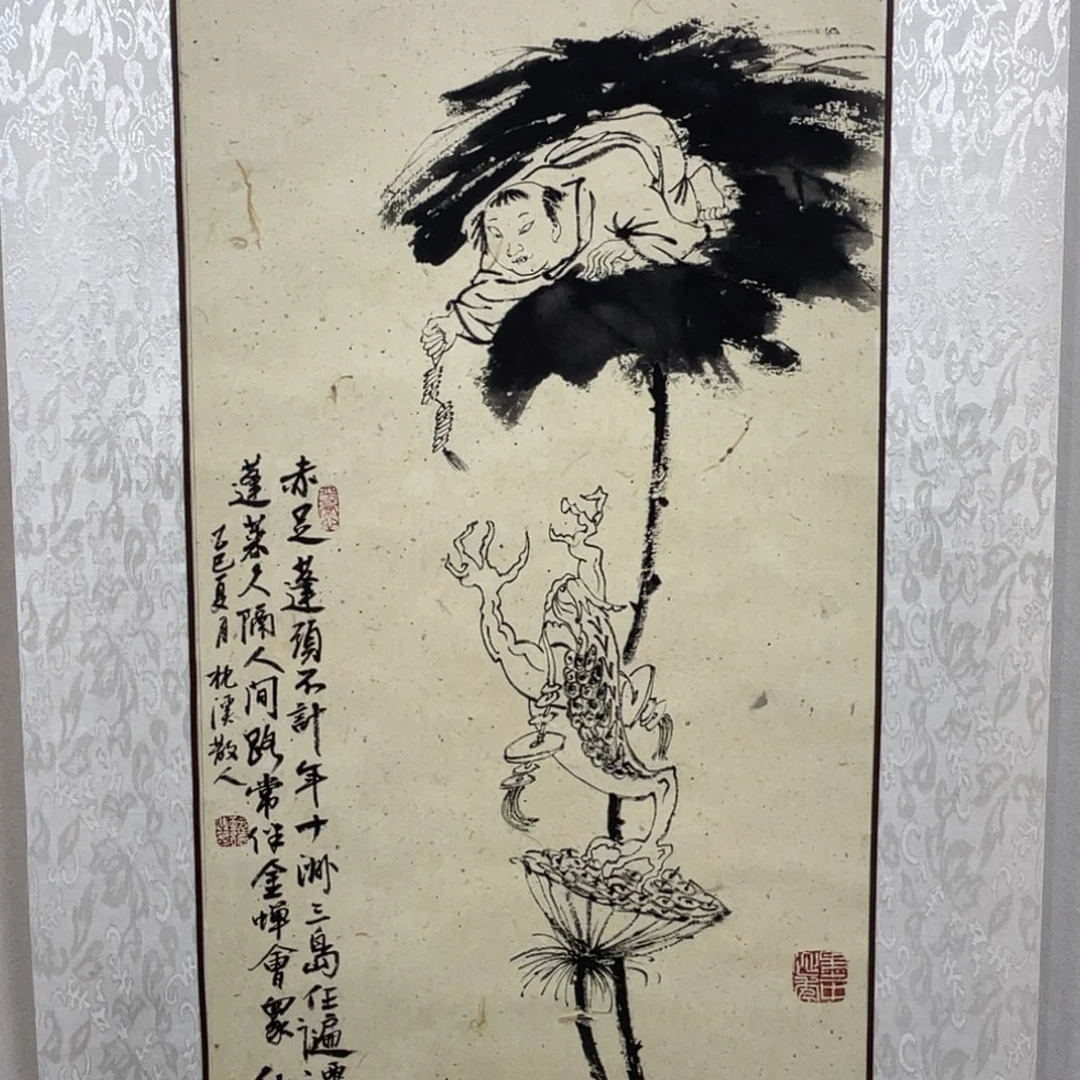 赤足蓬頭不計年十洲三島任遍
蓬萊久隔人间路常伴金蟬會衆
乙巳夏月枕溪散人